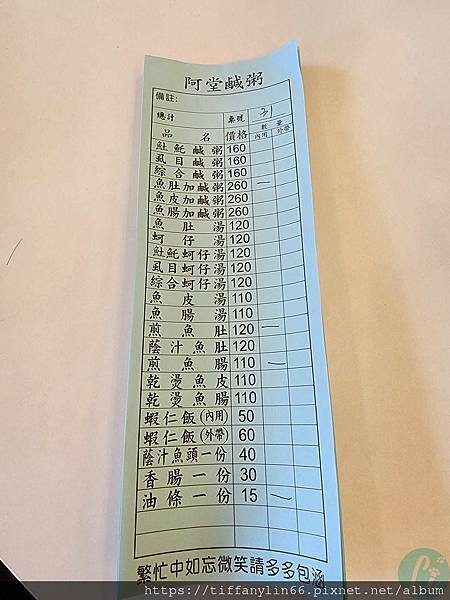 阿堂鹹粥
備註:
總計 車號 31
品名 價格 數量 內用 外帶
魠魠鹹粥 160
虱目鹹粥 160
綜合鹹粥 160
魚肚加鹹粥 260 一
魚皮加鹹粥 260
魚腸加鹹粥 260
魚肚湯 120
蚵仔湯 120
魠魠蚵仔湯 120
虱目蚵仔湯 120
綜合蚵仔湯 120
魚皮湯 110
魚腸湯 110
煎魚肚 120 一
蔭汁魚肚 120
煎魚腸 110 一
乾燙魚皮 110
乾燙魚腸 110
蝦仁飯(內用) 50
蝦仁飯(外帶) 60
蔭汁魚頭一份 40
香腸一份 30
油條一份 15 一
繁忙中如忘微笑請多多包涵
https://tiffanylin66.pixnet.net/album